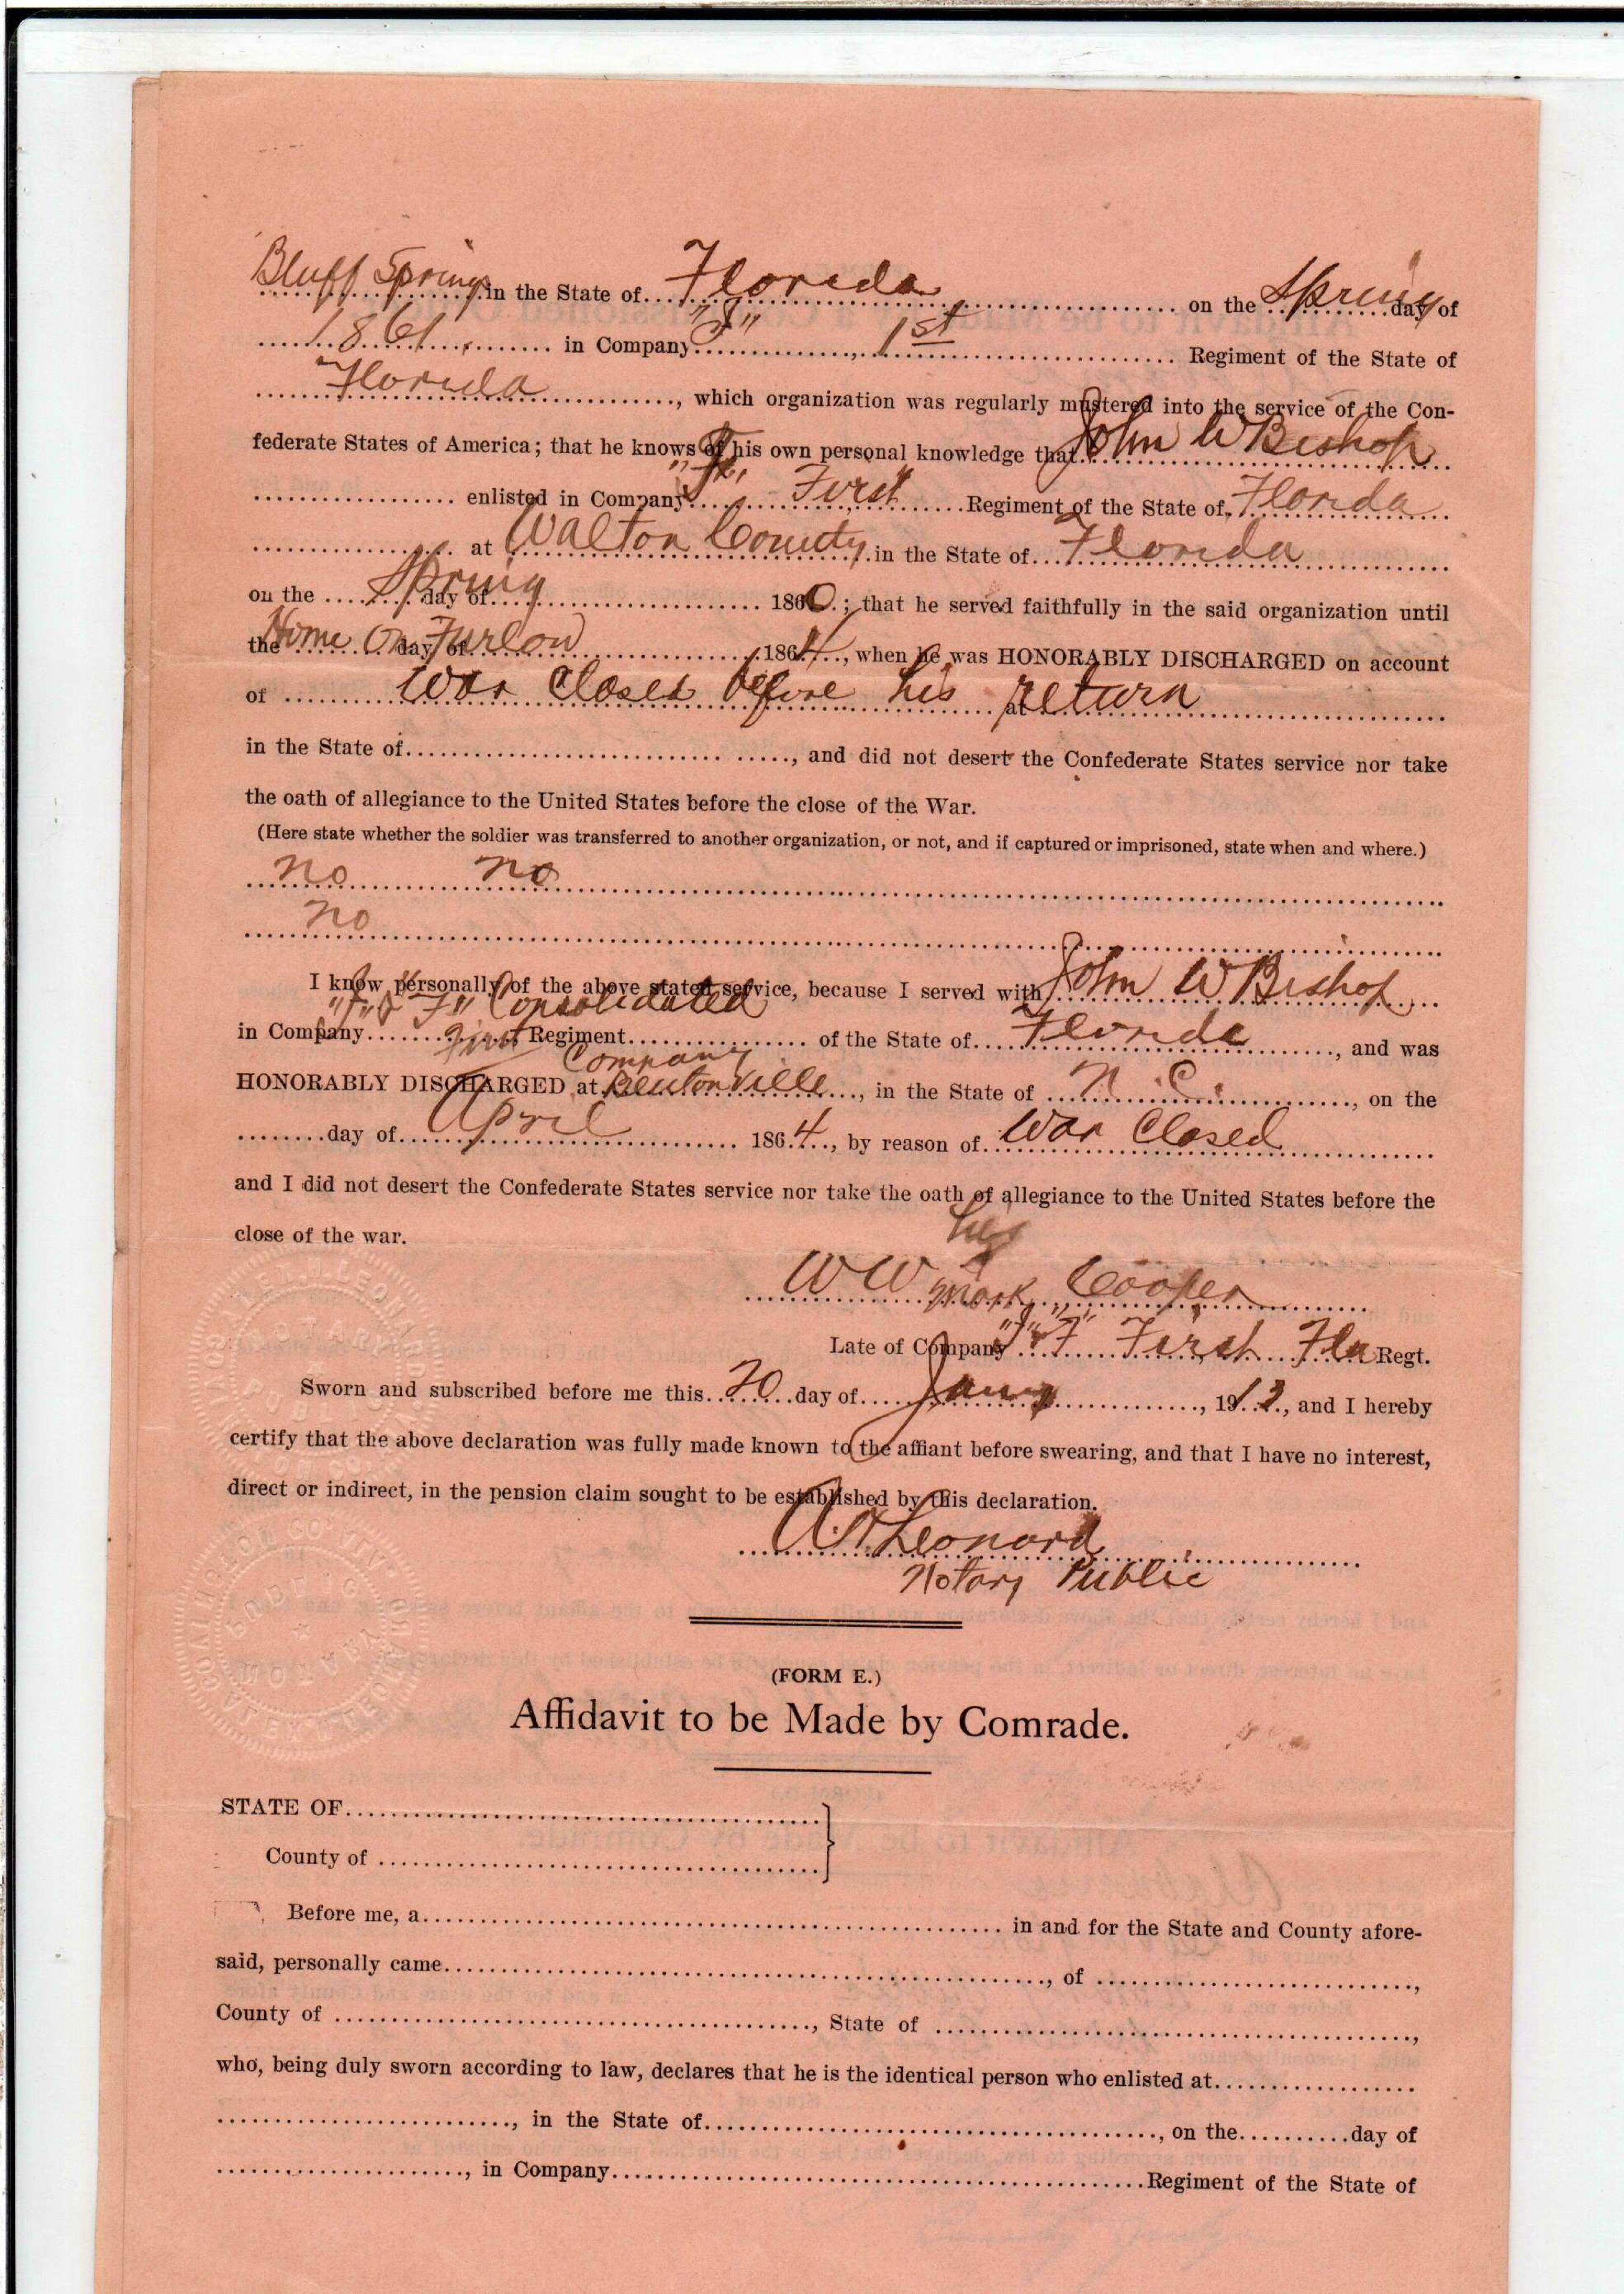 Bluff Springs in the State of Florida on the Spring day of
1861 in Company "I", 1st Regiment of the State of
Florida, which organization was regularly mustered into the service of the Con-
federate States of America; that he knows of his own personal knowledge that John W Bishop
enlisted in Company First Regiment of the State of Florida
at Walton County in the State of Florida
on the Spring day of 1860; that he served faithfully in the said organization until
the Home On Furlow day of 1864, when he was HONORABLY DISCHARGED on account
of War Closed before his at return
in the State of, and did not desert the Confederate States service nor take
the oath of allegiance to the United States before the close of the War.
(Here state whether the soldier was transferred to another organization, or not, and if captured or imprisoned, state when and where.)
no no
no
I know personally of the above stated service, because I served with John W Bishop
"I" & "F" Consolidated
in Company First Regiment of the State of Florida, and was
Company
HONORABLY DISCHARGED at Bentonville, in the State of N.C., on the
day of April 1864, by reason of War Closed
and I did not desert the Confederate States service nor take the oath of allegiance to the United States before the
close of the war.
his
W W mark Cooper
Late of Company "I" & "F" First Fla Regt.
Sworn and subscribed before me this 20 day of Jany, 1912, and I hereby
certify that the above declaration was fully made known to the affiant before swearing, and that I have no interest,
direct or indirect, in the pension claim sought to be established by this declaration.
Leonard
Notary Public
(FORM E.)
Affidavit to be Made by Comrade.
STATE OF
County of
Before me, a in and for the State and County afore-
said, personally came, of,
County of, State of,
who, being duly sworn according to law, declares that he is the identical person who enlisted at
, in the State of, on the day of
, in Company Regiment of the State of